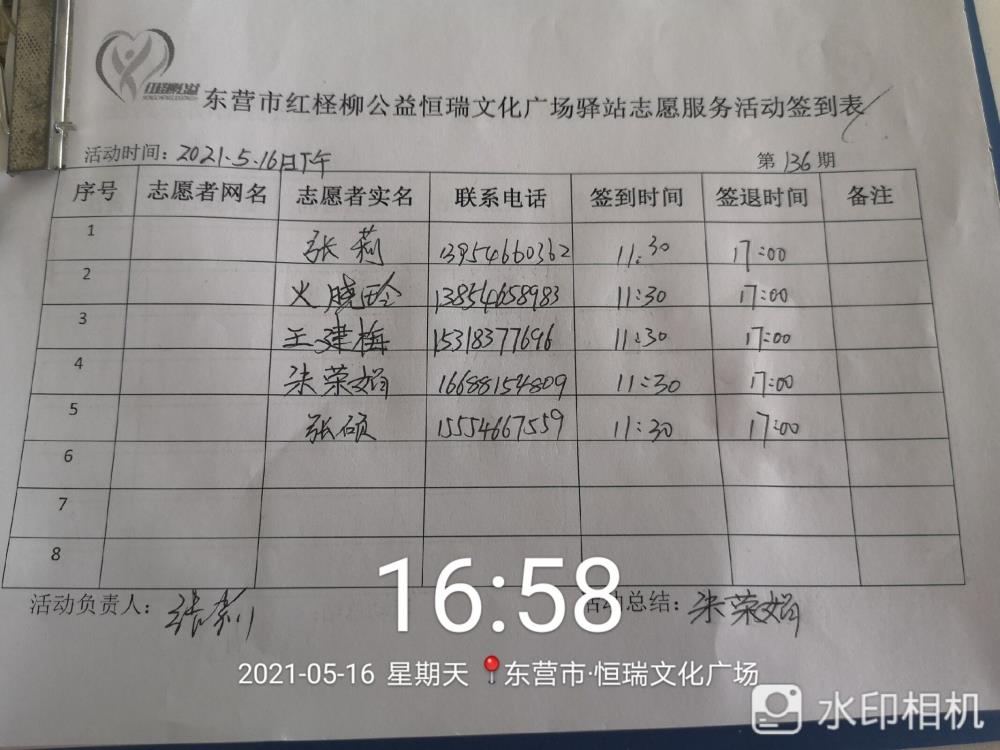 红柽柳公益
东营市红柽柳公益恒瑞文化广场驿站志愿服务活动签到表
活动时间：2021.5.16日下午 第136期
序号 志愿者网名 志愿者实名 联系电话 签到时间 签退时间 备注
1 张莉 13954660362 11:30 17:00
2 火晓玲 13854658983 11:30 17:00
3 王建梅 15318377696 11:30 17:00
4 朱荣娟 16688154809 11:30 17:00
5 张硕 15554667559 11:30 17:00
6
7
8
活动负责人：张莉 活动总结：朱荣娟
16:58
2021-05-16 星期天 东营市·恒瑞文化广场
水印相机